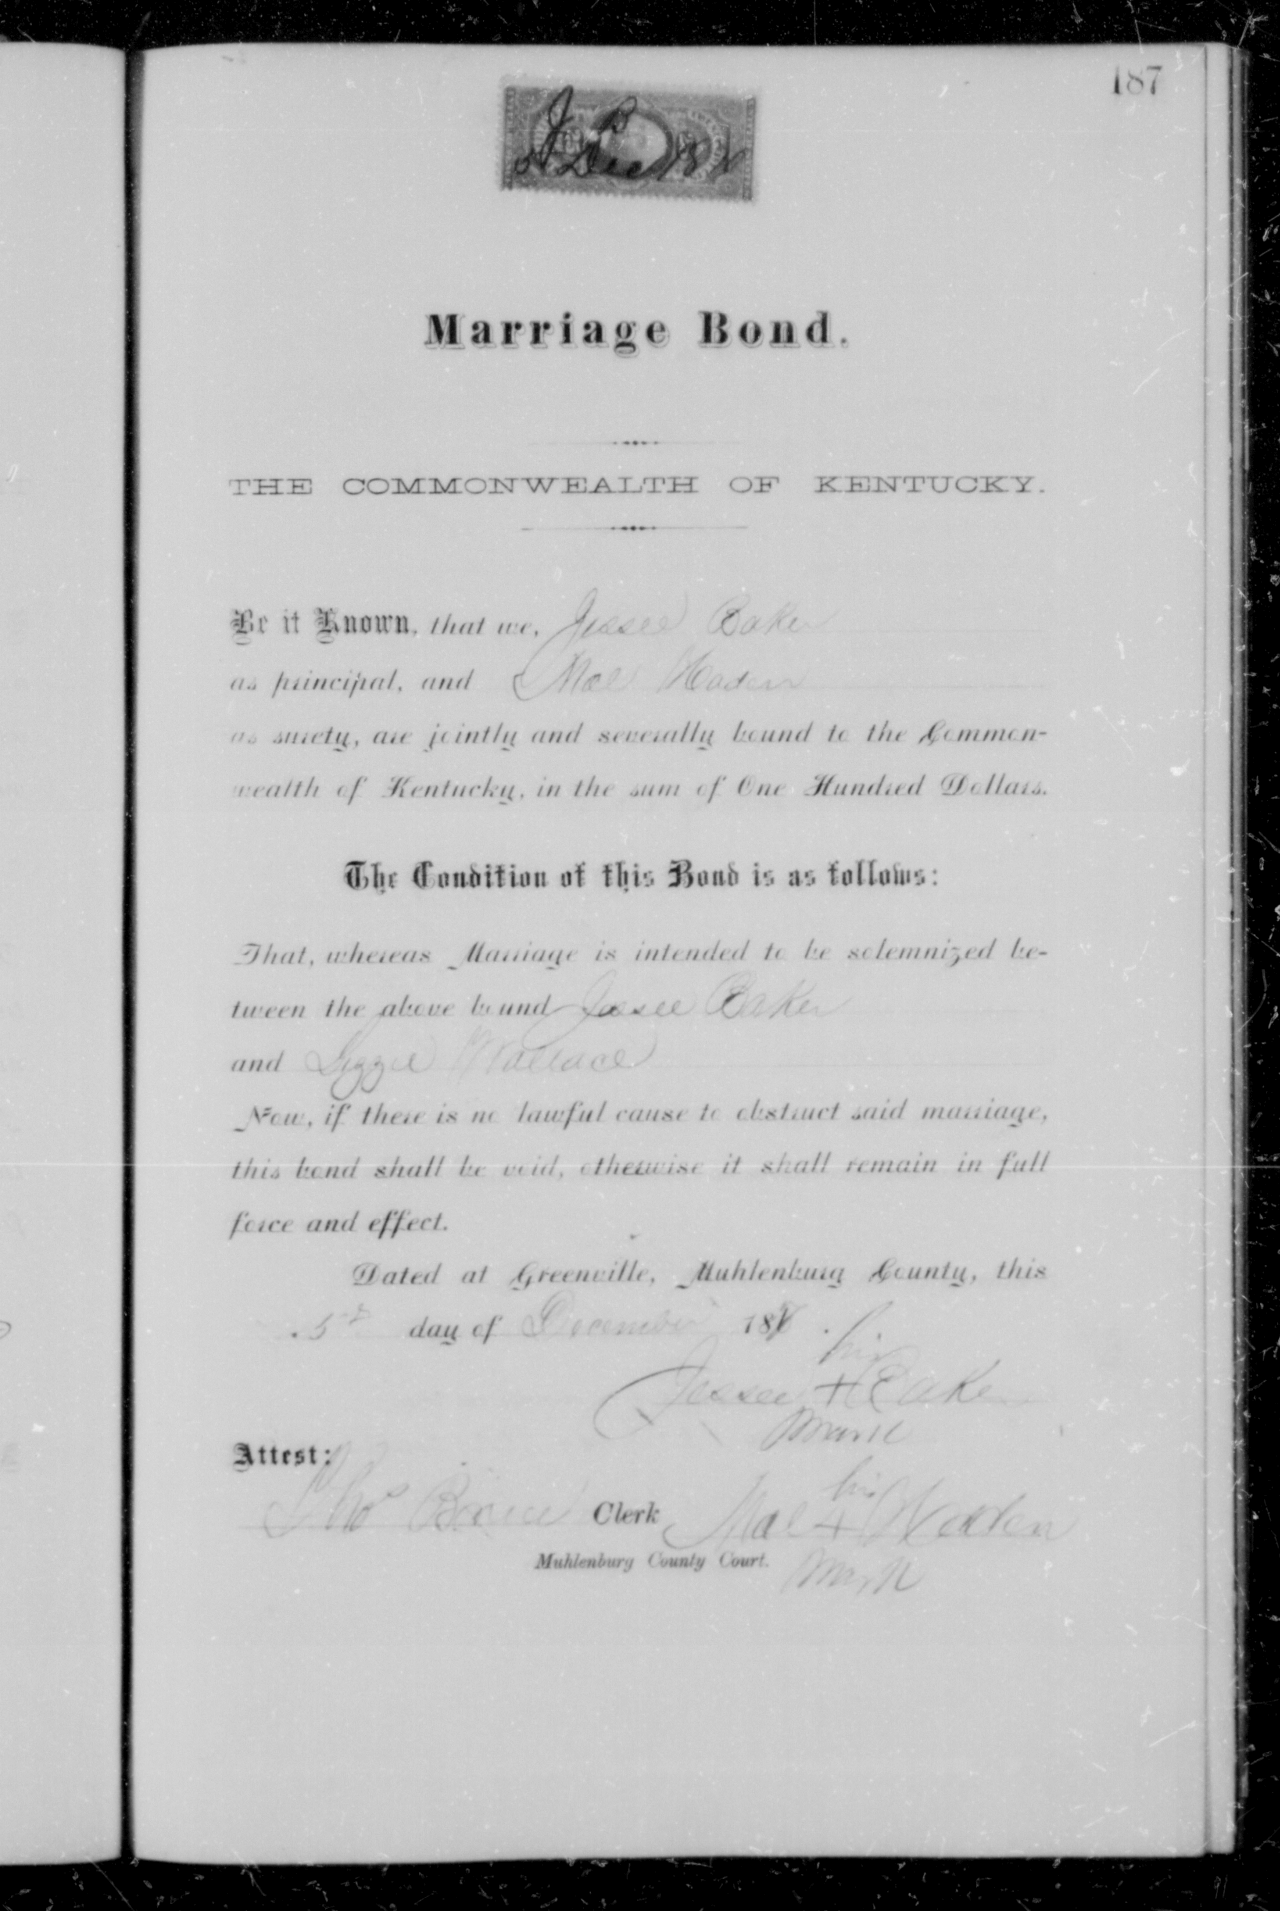 187
J B
5 Dec 18
Marriage Bond.
THE COMMONWEALTH OF KENTUCKY.
Be it Known, that we, Jessee Baker
as principal, and Mal Haden
as surety, are jointly and severally bound to the Common-
wealth of Kentucky, in the sum of One Hundred Dollars.
The Condition of this Bond is as follows:
That, whereas Marriage is intended to be solemnized be-
tween the above bound Jessee Baker
and Lizzie Wallace
Now, if there is no lawful cause to obstruct said marriage,
this bond shall be void, otherwise it shall remain in full
force and effect.
Dated at Greenville, Muhlenburg County, this
5 day of December 18
his
Jessee + Baker
mark
Attest:
Thos Clerk
his
Mal + Haden
Muhlenburg County Court.
mark